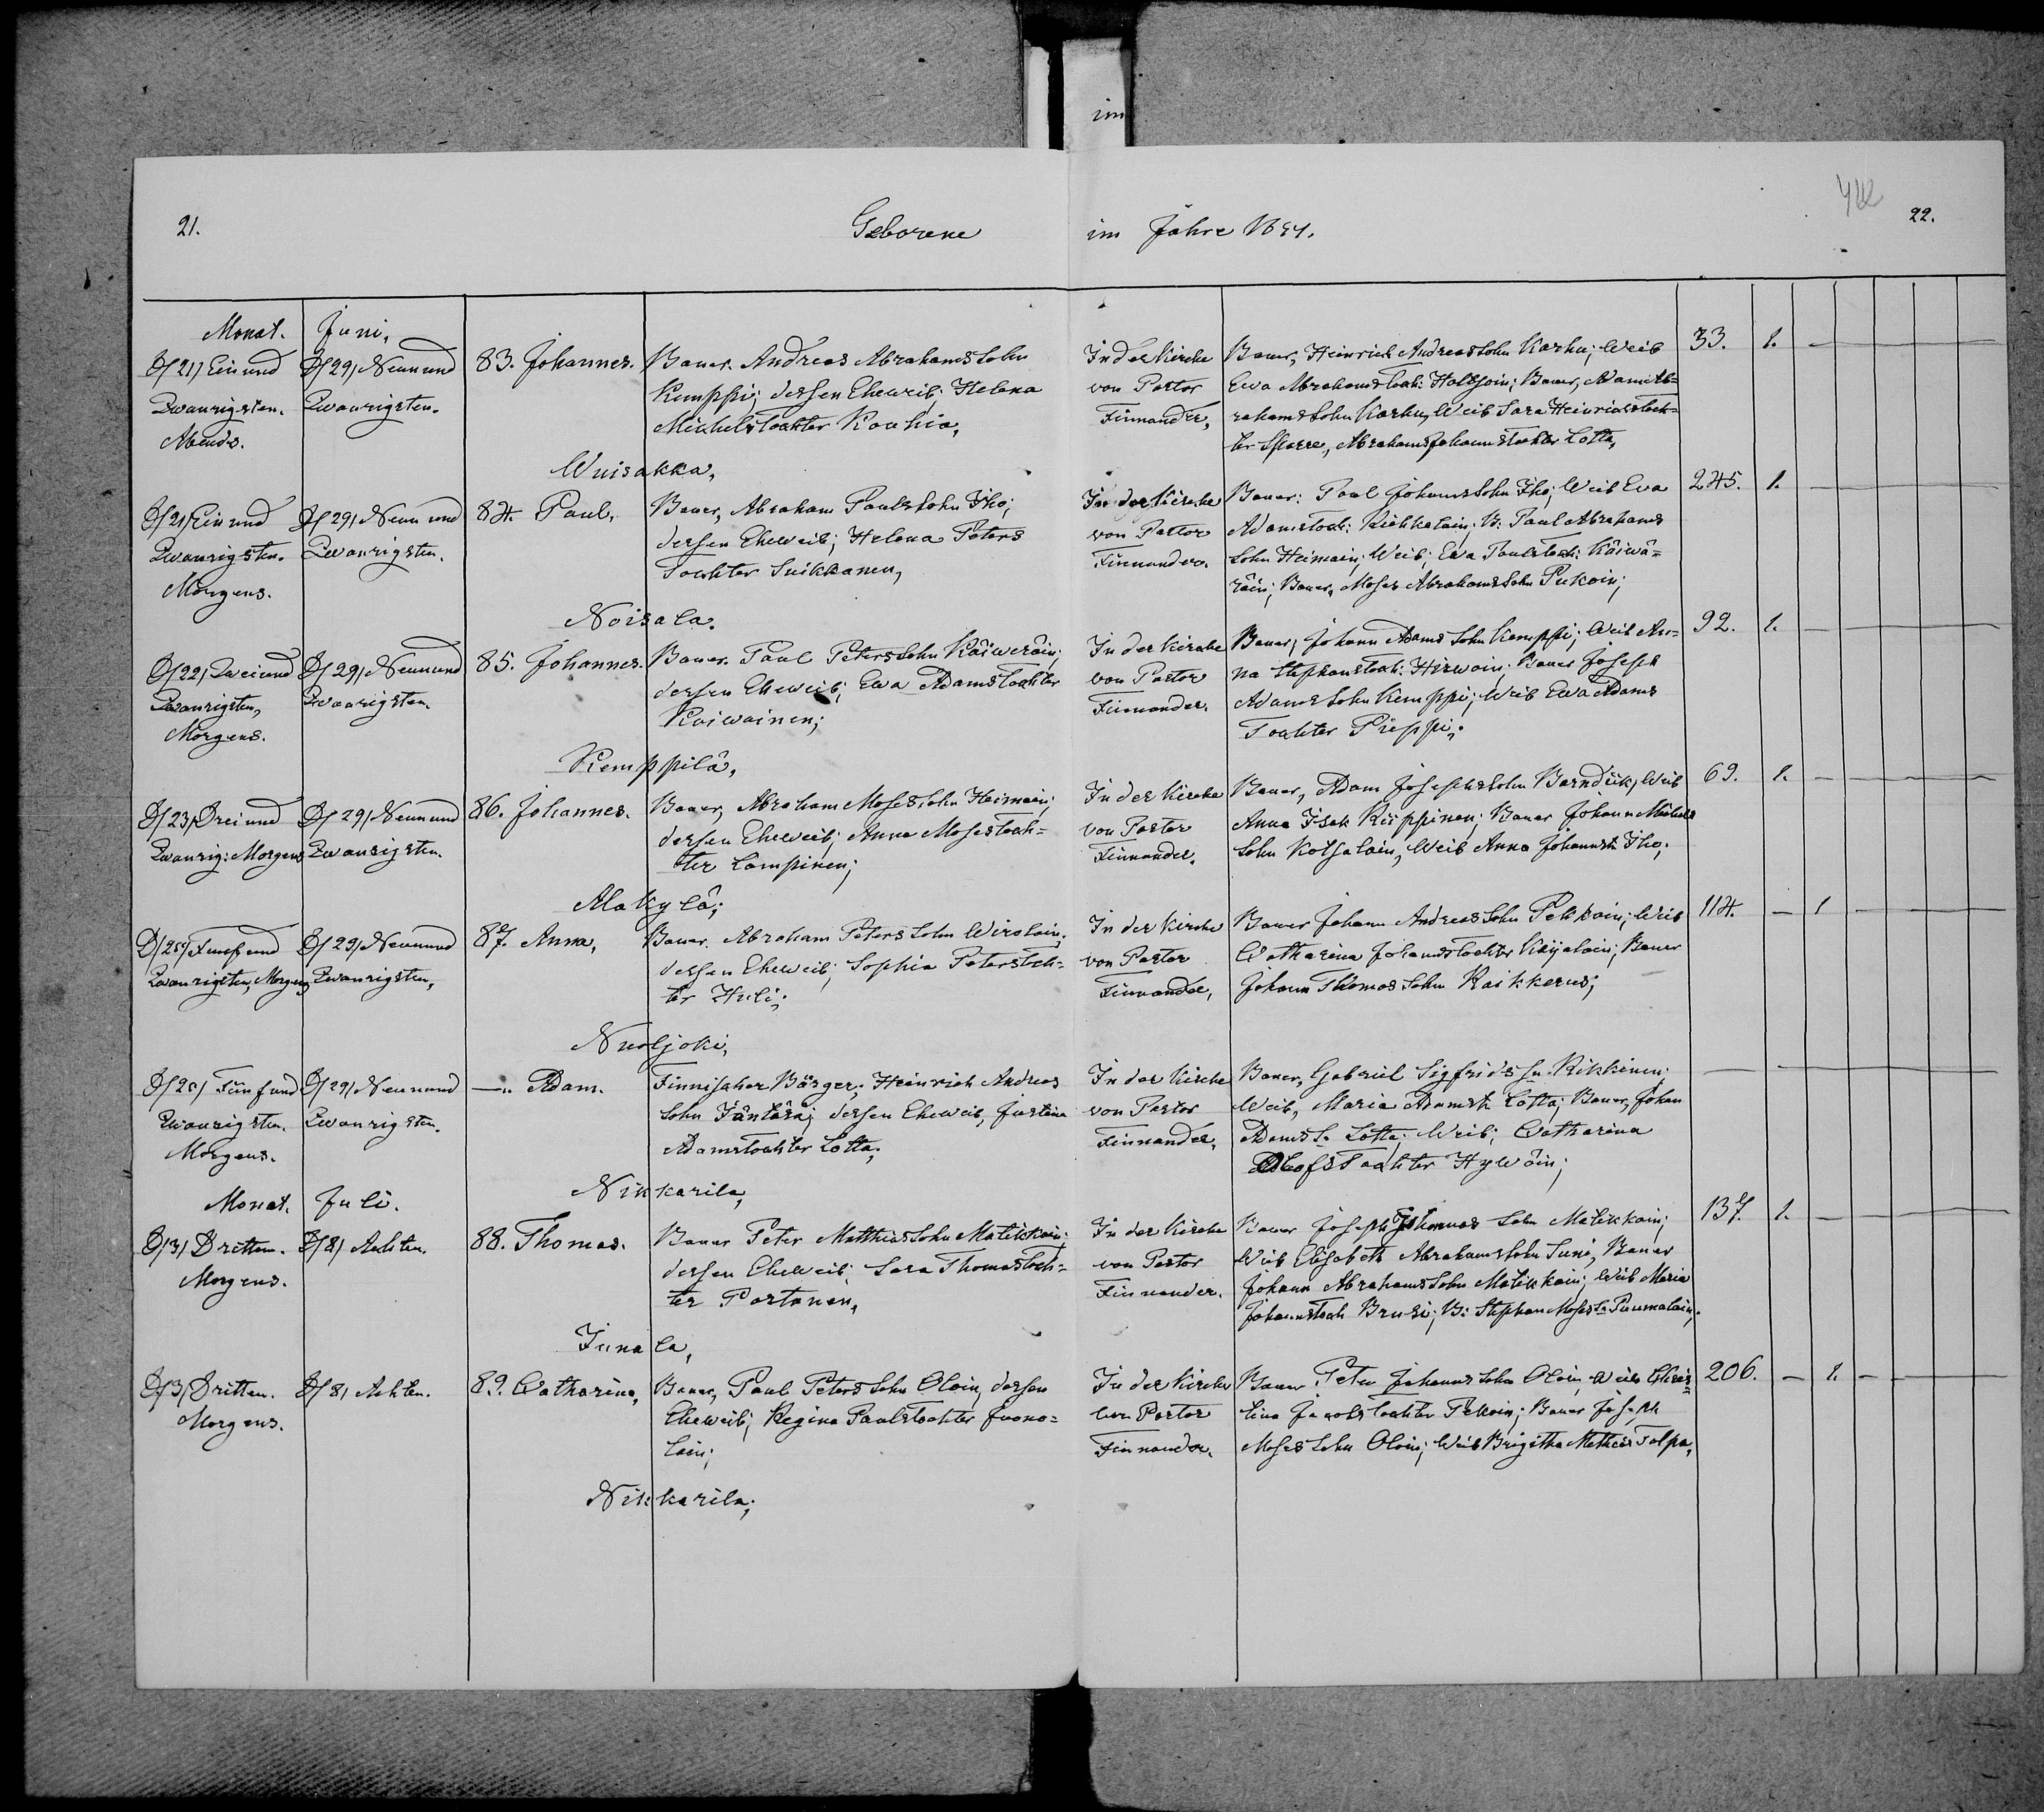 im
21.
Geborene
im Jahre 1841.
22.
Monat. Juni,
D/21/ Ein und
Zwanzigsten.
Abends.
D/29/ Neun und
Zwanzigsten.
83. Johannes.
Bauer. Andreas Abrahams Sohn
Kemppi; dessen Eheweib; Helena
Michelstochter Kouhia,
Wuisakka,
In der Kirche
von Pastor
Finnander,
Bauer, Heinrich Andreas Sohn Karhu; Weib
Ewa Abrahamstoch: Hatkoin; Bauer, Adam Ab=
rahams Sohn Karhu, Weib Sara Heinrichstoch=
ter Sparre, Abrahams Johannstochter Lotta,
33. 1. —
D/21/ Ein und
Zwanzigsten.
Morgens.
D/29/ Neun und
Zwanzigsten.
84. Paul,
Bauer, Abraham Pauls Sohn Iho;
dessen Eheweib; Helena Peters
Tochter Suikkanen,
Noisala.
In der Kirche
von Pastor
Finnander.
Bauer: Paul Johanns Sohn Iho; Weib Eva
Adamstoch: Kiehkalain; B: Paul Abrahams
Sohn Heimain; Weib; Ewa Paulstoch: Käiwä=
räin; Bauer, Moses Abrahams Sohn Pukoin;
245. 1. —
D/22/ Zwei und
Zwanzigsten,
Morgens.
D/29/ Neun und
Zwanzigsten.
85. Johannes.
Bauer. Paul Peters Sohn Käiweräin;
dessen Eheweib; Ewa Adamstochter
Raiwainen;
Kemppilä,
In der Kirche
von Pastor
Finnander.
Bauer, Johann Adams Sohn Kemppi; Weib An=
na Stephanstoch: Hirwoin; Bauer Joseph
Adams Sohn Kemppi; Weib Ewa Adams
Tochter Pieppi;
92. 1. —
D/23/ Drei und
Zwanzig: Morgens
D/29/ Neun und
Zwanzigsten.
86. Johannes.
Bauer, Abraham Moses Sohn Heimain;
dessen Eheweib; Anna Mosestoch=
ter Lampinen;
Alakylä;
In der Kirche
von Pastor
Finnander.
Bauer, Adam Josephs Sohn Barndük; Weib
Anna Isak Küppinen; Bauer Johann Michels
Sohn Kotsalain, Weib Anna Johannst: Iho;
69. 1. —
D/25/ Fünf und
Zwanzigsten, Morgens
D/29/ Neun und
Zwanzigsten,
87. Anna,
Bauer. Abraham Peters Sohn Wirolain;
dessen Eheweib; Sophia Peterstoch=
ter Huli;
Nuoljoki,
In der Kirche
von Pastor
Finnander,
Bauer Johann Andreas Sohn Pekkoin; Weib
Catharina Johannstochter Kaijalain; Bauer
Johann Thomas Sohn Raikkerus;
114. — 1 —
D/25/ Fünf und
Zwanzigsten.
Morgens.
D/29/ Neun und
Zwanzigsten.
—„ Adam.
Finnischer Bürger; Heinrich Andreas
Sohn Jäntärä; dessen Eheweib, Justina
Adamstochter Lotta;
Nikkarila,
In der Kirche
von Pastor
Finnander,
Bauer, Gabriel Sigfrids Sn. Rikkinen;
Weib, Maria Adamst: Lotta; Bauer, Johan
Adams S. Lotta; Weib; Catharina
Olofs Tochter Hywöin;
—
Monat. Juli.
D/3/ Dritten.
Morgens.
D/8/ Achten.
88. Thomas.
Bauer Peter Matthias Sohn Matikkain;
dessen Eheweib; Sara Thomastoch=
ter Partanen,
Junala,
In der Kirche
von Pastor
Finnander.
Bauer Joseph Johannes Sohn Matikkain;
Weib Elisabeth Abrahams Sohn Suni; Bauer
Johann Abrahams Sohn Matikkain; Weib Maria
Johannstoch Brusi; B: Stephan Moses Sn Puumalain;
137. 1. —
D/3/ Dritten.
Morgens.
D/8/ Achten.
89. Catharina,
Bauer, Paul Peters Sohn Oloin, dessen
Eheweib; Regina Paulstochter Juono=
lain;
Nikkarila;
In der Kirche
von Pastor
Finnander.
Bauer Peter Johanns Sohn Oloin, Weib Chris=
tina Jacobstochter Pekoin; Bauer Joseph
Moses Sohn Oloin; Weib Brigitha Mathias Talpa,
206. — 1. —